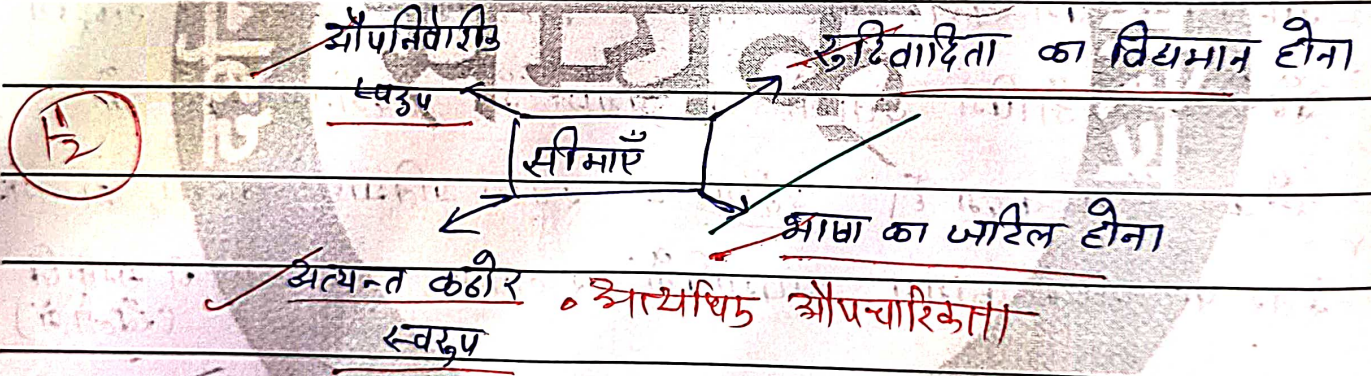 औपनिवेशिक
स्वरूप
रुढिवादिता का विद्यमान होना
1½
सीमाएँ
भाषा का जटिल होना
अत्यन्त कठोर
स्वरूप
• अत्यधिक औपचारिकता